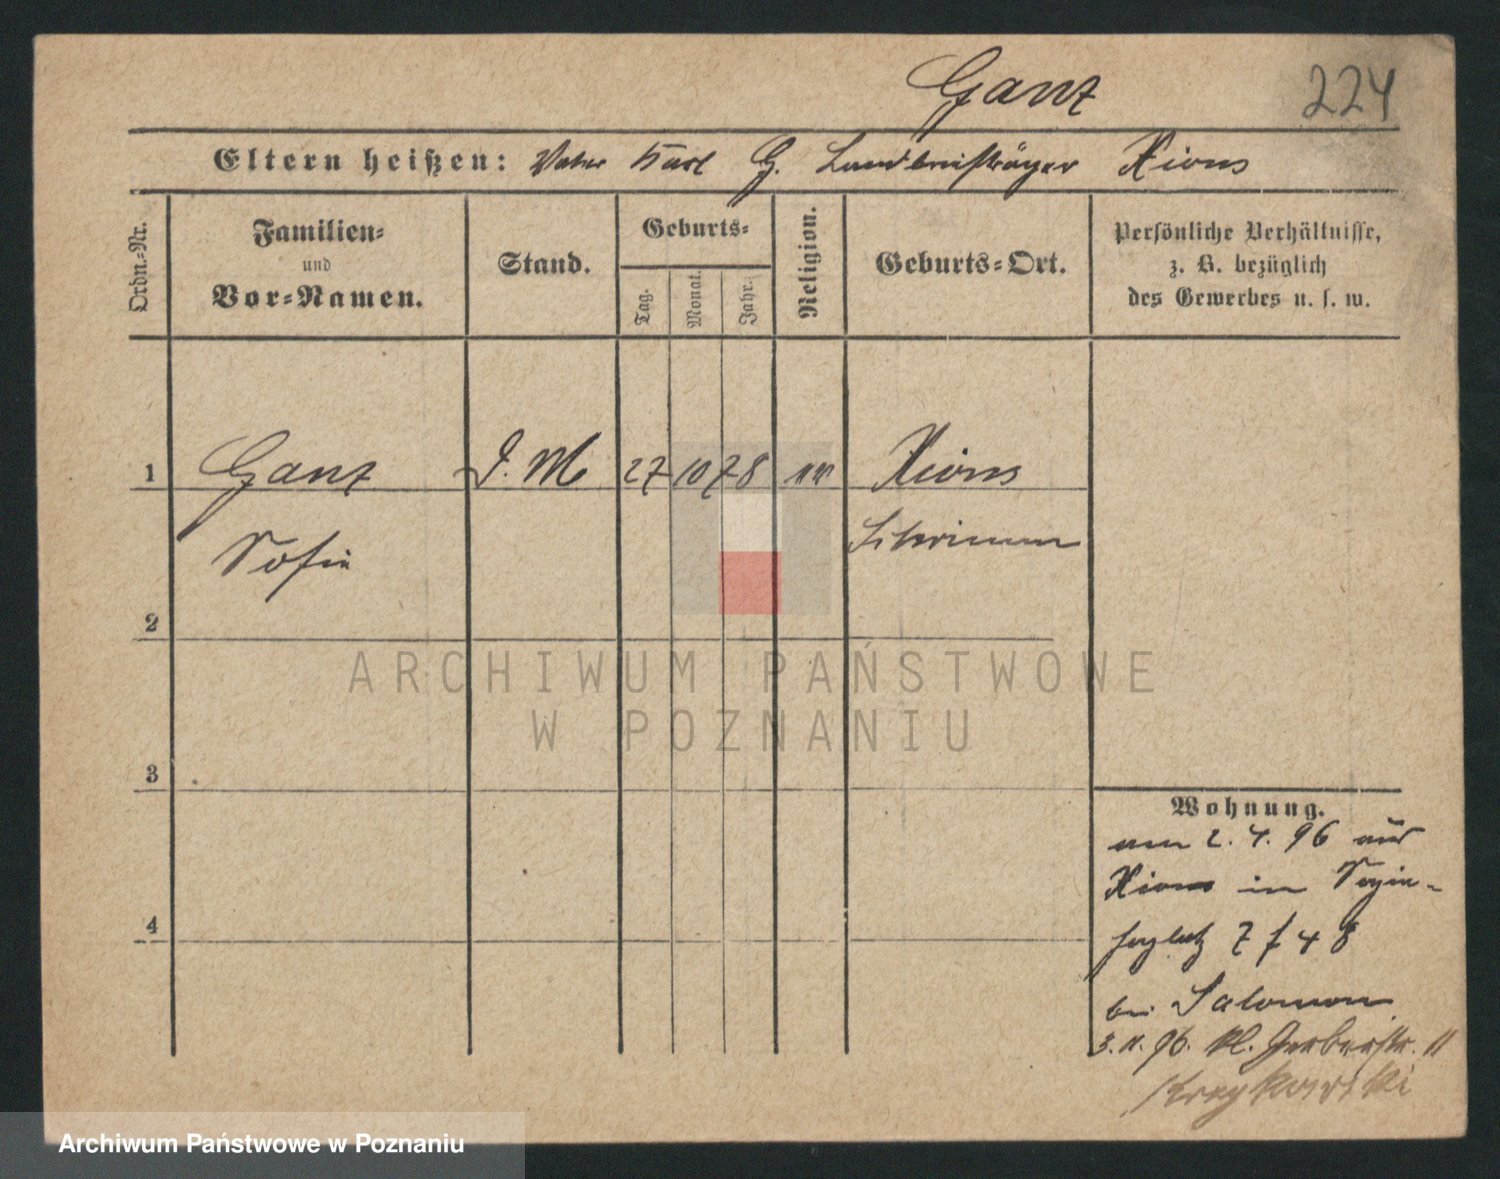 Ganz
224
Eltern heißen: Vater Karl G. Landbriefträger Xions
Ordn.-Nr.
Familien-
und
Vor-Namen.
Stand.
Geburts-
Tag.
Monat.
Jahr.
Religion.
Geburts-Ort.
Persönliche Verhältnisse,
z. B. bezüglich
des Gewerbes u. s. w.
1 Ganz D. M 27 10 78 Xions
Sofie Schrimm
2
ARCHIWUM PAŃSTWOWE
W POZNANIU
3
4
Wohnung.
am 2. 4. 96 aus
Xions in
7 f 4 8
bei Salomon
3. 11. 96. Kl. Gerberstr. 11
Krzykowski
Archiwum Państwowe w Poznaniu